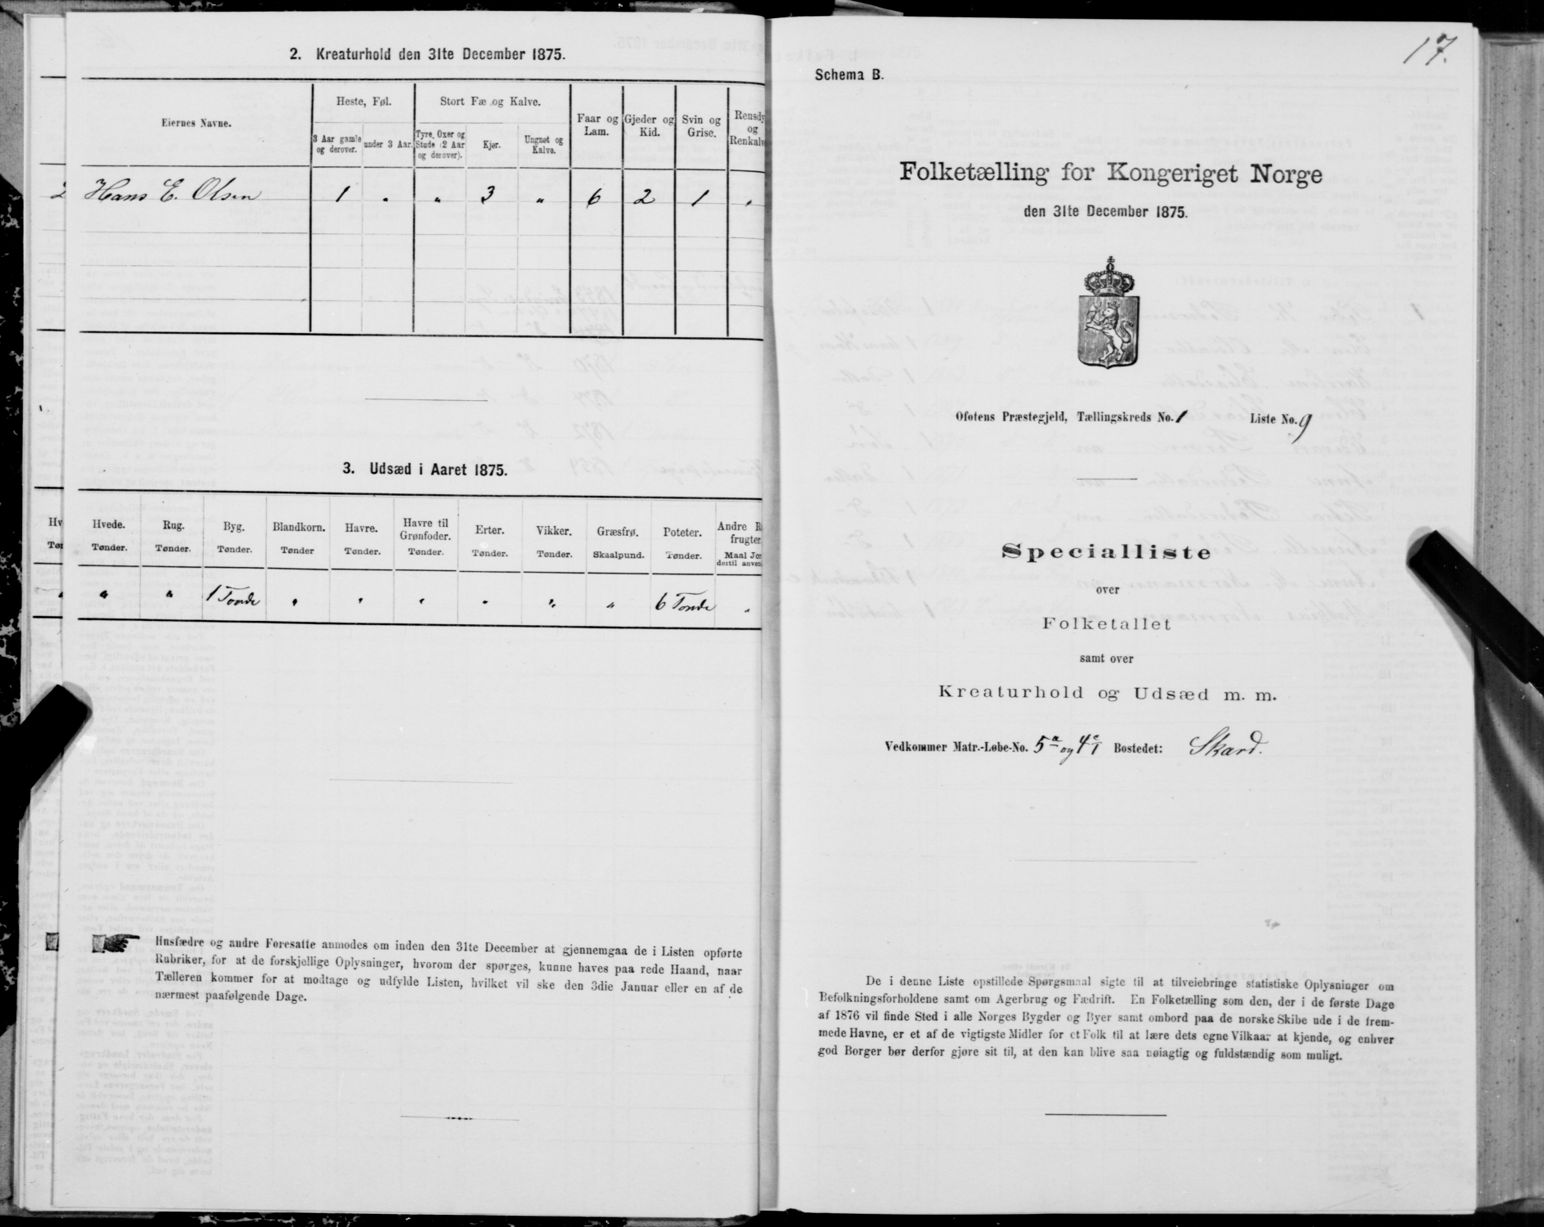 2. Kreaturhold den 31te December 1875.
Eiernes Navne.
Heste, Føl.
3 Aar gamle og derover.
under 3 Aar.
Stort Fæ og Kalve.
Tyre, Oxer og Stude (2 Aar og derover).
Kjør.
Ungnøt og Kalve.
Faar og Lam.
Gjeder og Kid.
Svin og Grise.
Rensdy
og
Renkalv
2 Hans E. Olsen 1 " " 3 " 6 2 1 "
3. Udsæd i Aaret 1875.
Hvede. Tønder.
Rug. Tønder.
Byg. Tønder.
Blandkorn. Tønder
Havre. Tønder.
Havre til Grønfoder. Tønder.
Erter. Tønder.
Vikker. Tønder.
Græsfrø. Skaalpund.
Poteter. Tønder.
Andre R
frugter
Maal Jor
dertil anven
" " 1 Tønde " " " " " " 6 Tønde "
Husfædre og andre Foresatte anmodes om inden den 31te December at gjennemgaa de i Listen opførte
Rubriker, for at de forskjellige Oplysninger, hvorom der spørges, kunne haves paa rede Haand, naar
Tælleren kommer for at modtage og udfylde Listen, hvilket vil ske den 3die Januar eller en af de
nærmest paafølgende Dage.
17.
Schema B.
Folketælling for Kongeriget Norge
den 31te December 1875.
Ofotens Præstegjeld, Tællingskreds No. 1 Liste No. 9
Specialliste
over
Folketallet
samt over
Kreaturhold og Udsæd m. m.
Vedkommer Matr.-Løbe-No. 5a og 4c1 Bostedet: Skard.
De i denne Liste opstillede Spørgsmaal sigte til at tilveiebringe statistiske Oplysninger om
Befolkningsforholdene samt om Agerbrug og Fædrift. En Folketælling som den, der i de første Dage
af 1876 vil finde Sted i alle Norges Bygder og Byer samt ombord paa de norske Skibe ude i de frem-
mede Havne, er et af de vigtigste Midler for et Folk til at lære dets egne Vilkaar at kjende, og enhver
god Borger bør derfor gjøre sit til, at den kan blive saa nøiagtig og fuldstændig som muligt.